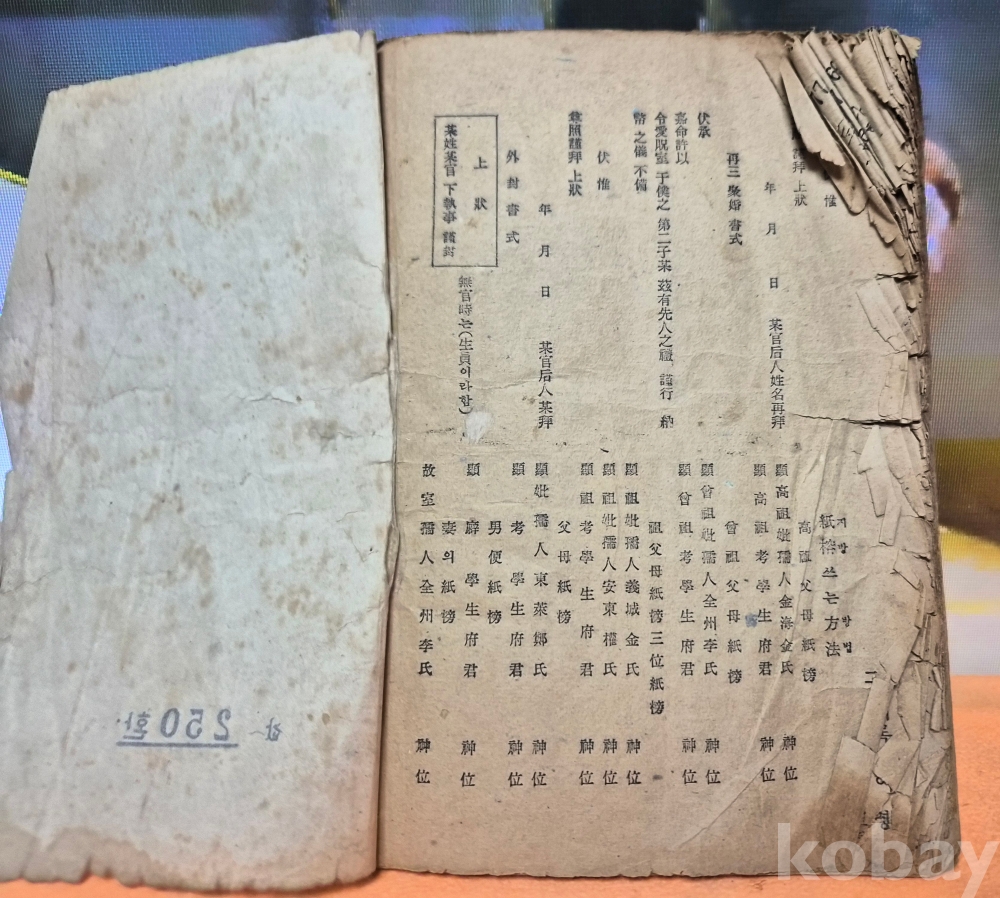 惟
謹拜 上狀
年 月 日 某官后人姓名再拜
再三娶婚書式
伏承
嘉命許以
令愛貺室 于僕之 第二子某 玆有先人之禮 謹行 納
幣之儀 不備
伏惟
尊照謹拜 上狀
年 月 日 某官后人某拜
外封書式
上狀
某姓某官 下執事 謹封
無官時는(生員이라함)
지방 방법
紙榜쓰는方法
高祖父母紙榜
顯高祖妣孺人金海金氏 神位
顯高祖考學生府君 神位
曾祖父母紙榜
顯曾祖妣孺人全州李氏 神位
顯曾祖考學生府君 神位
祖父母紙榜三位紙榜
顯祖妣孺人義城金氏 神位
顯祖妣孺人安東權氏 神位
顯祖考學生府君 神位
父母紙榜
顯妣孺人東萊鄭氏 神位
顯考學生府君 神位
男便紙榜
顯辟學生府君 神位
妻의紙榜
故室孺人全州李氏 神位
250
kobay